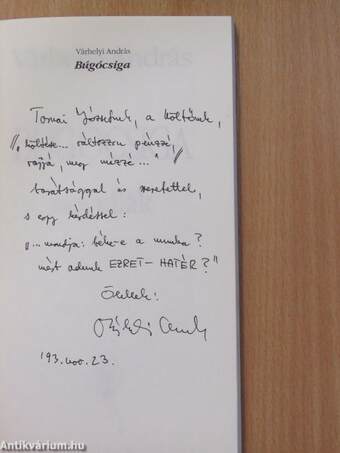 Várhelyi András
Búgócsiga
Tornai Józsefnek, a költőnek,
„költése... változzon pénzzé,
vajjá, meg mézzé..."
barátsággal és szeretettel,
s egy kérdéssel:
„... mondja: béke-e a munka?
mért adunk EZRET-HATÉR?"
Ölelek:
'93. nov. 23.
Antikvárium.hu